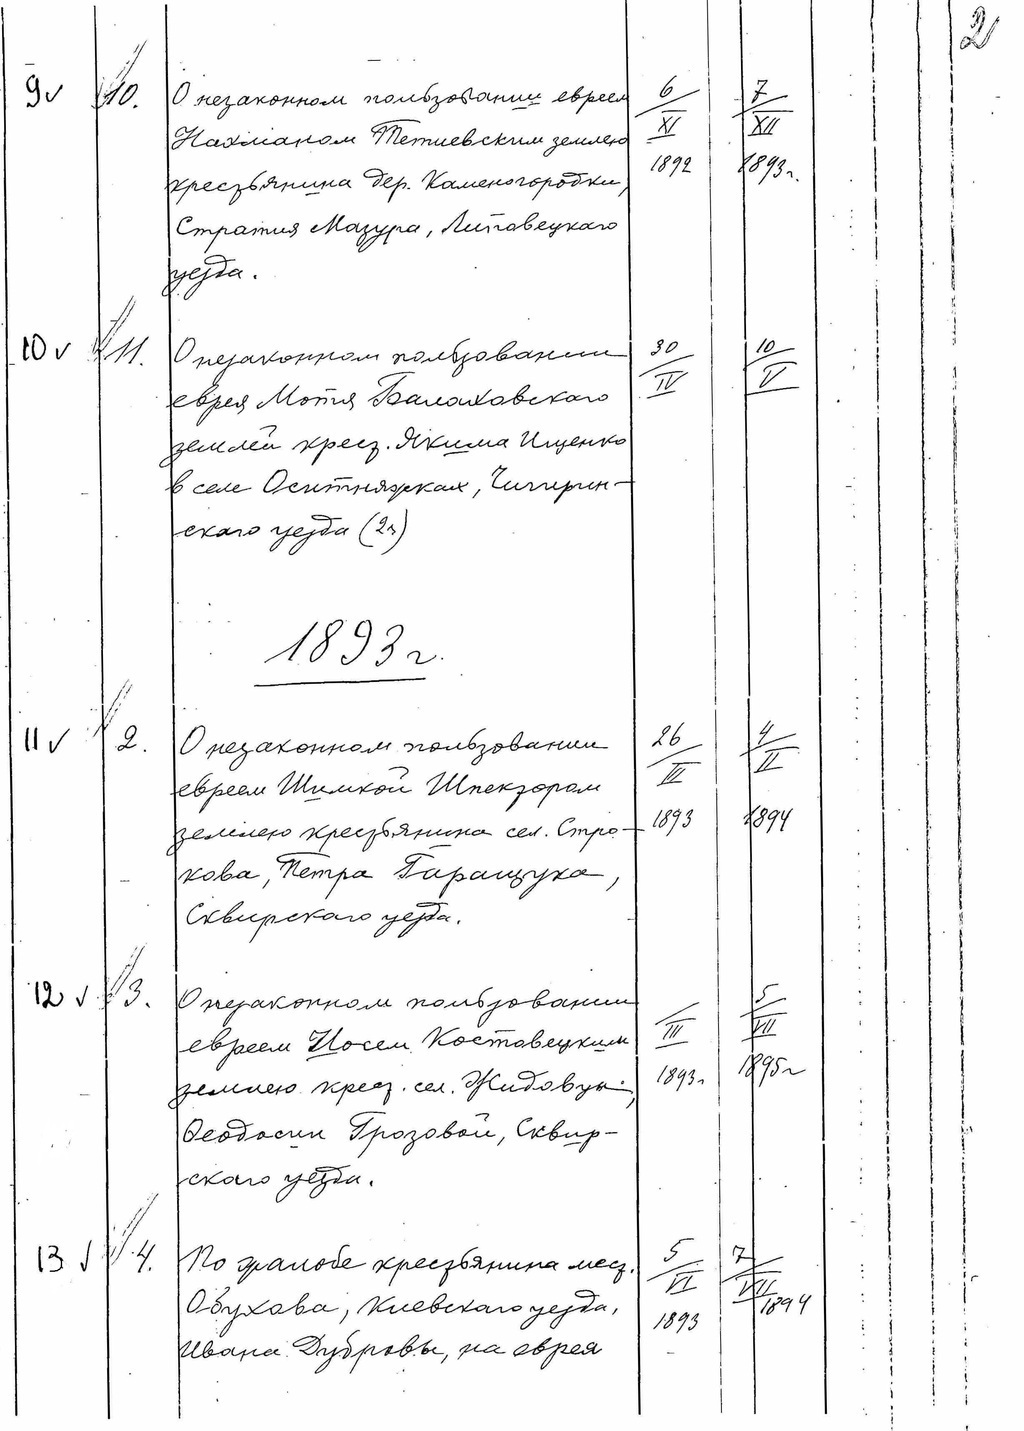 2
9 v 10. О незаконном пользовании евреем 6/XI 1892 7/XII 1893 г.
Нахманом Тетиевским землею
крестьянина дер. Каменогородки,
Стратия Мазура, Липовецкаго
уезда.
10 v 11. О незаконном пользовании 30/IV 10/V
еврея Мотя Балаховскаго
землей крест. Якима Ищенко
в селе Оситняжках, Чигирин-
скаго уезда (2я)
1893 г.
11 v 2. О незаконном пользовании 26/III 1893 4/II 1894
евреем Шимкой Шпектором
землею крестьянина сел. Стро-
кова, Петра Гаращука,
Сквирскаго уезда.
12 v 3. О незаконном пользовании /III 1893 г 5/VII 1895 г
евреем Иосем Костовецким
землею крест. сел. Жидовцы,
Феодосии Грозовой, Сквир-
скаго уезда.
13 v 4. По жалобе крестьянина мест. 5/VI 1893 7/VII 1894
Обухова, Киевскаго уезда,
Ивана Дубровы, на еврея